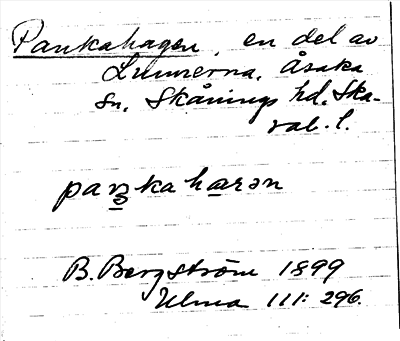 Pankahagen, en del av
Lunnerna, Åsaka
sn, Skånings hd. Ska-
rab. l.
paŋkahaгən
B. Bergström 1899
Ulma 111: 296.